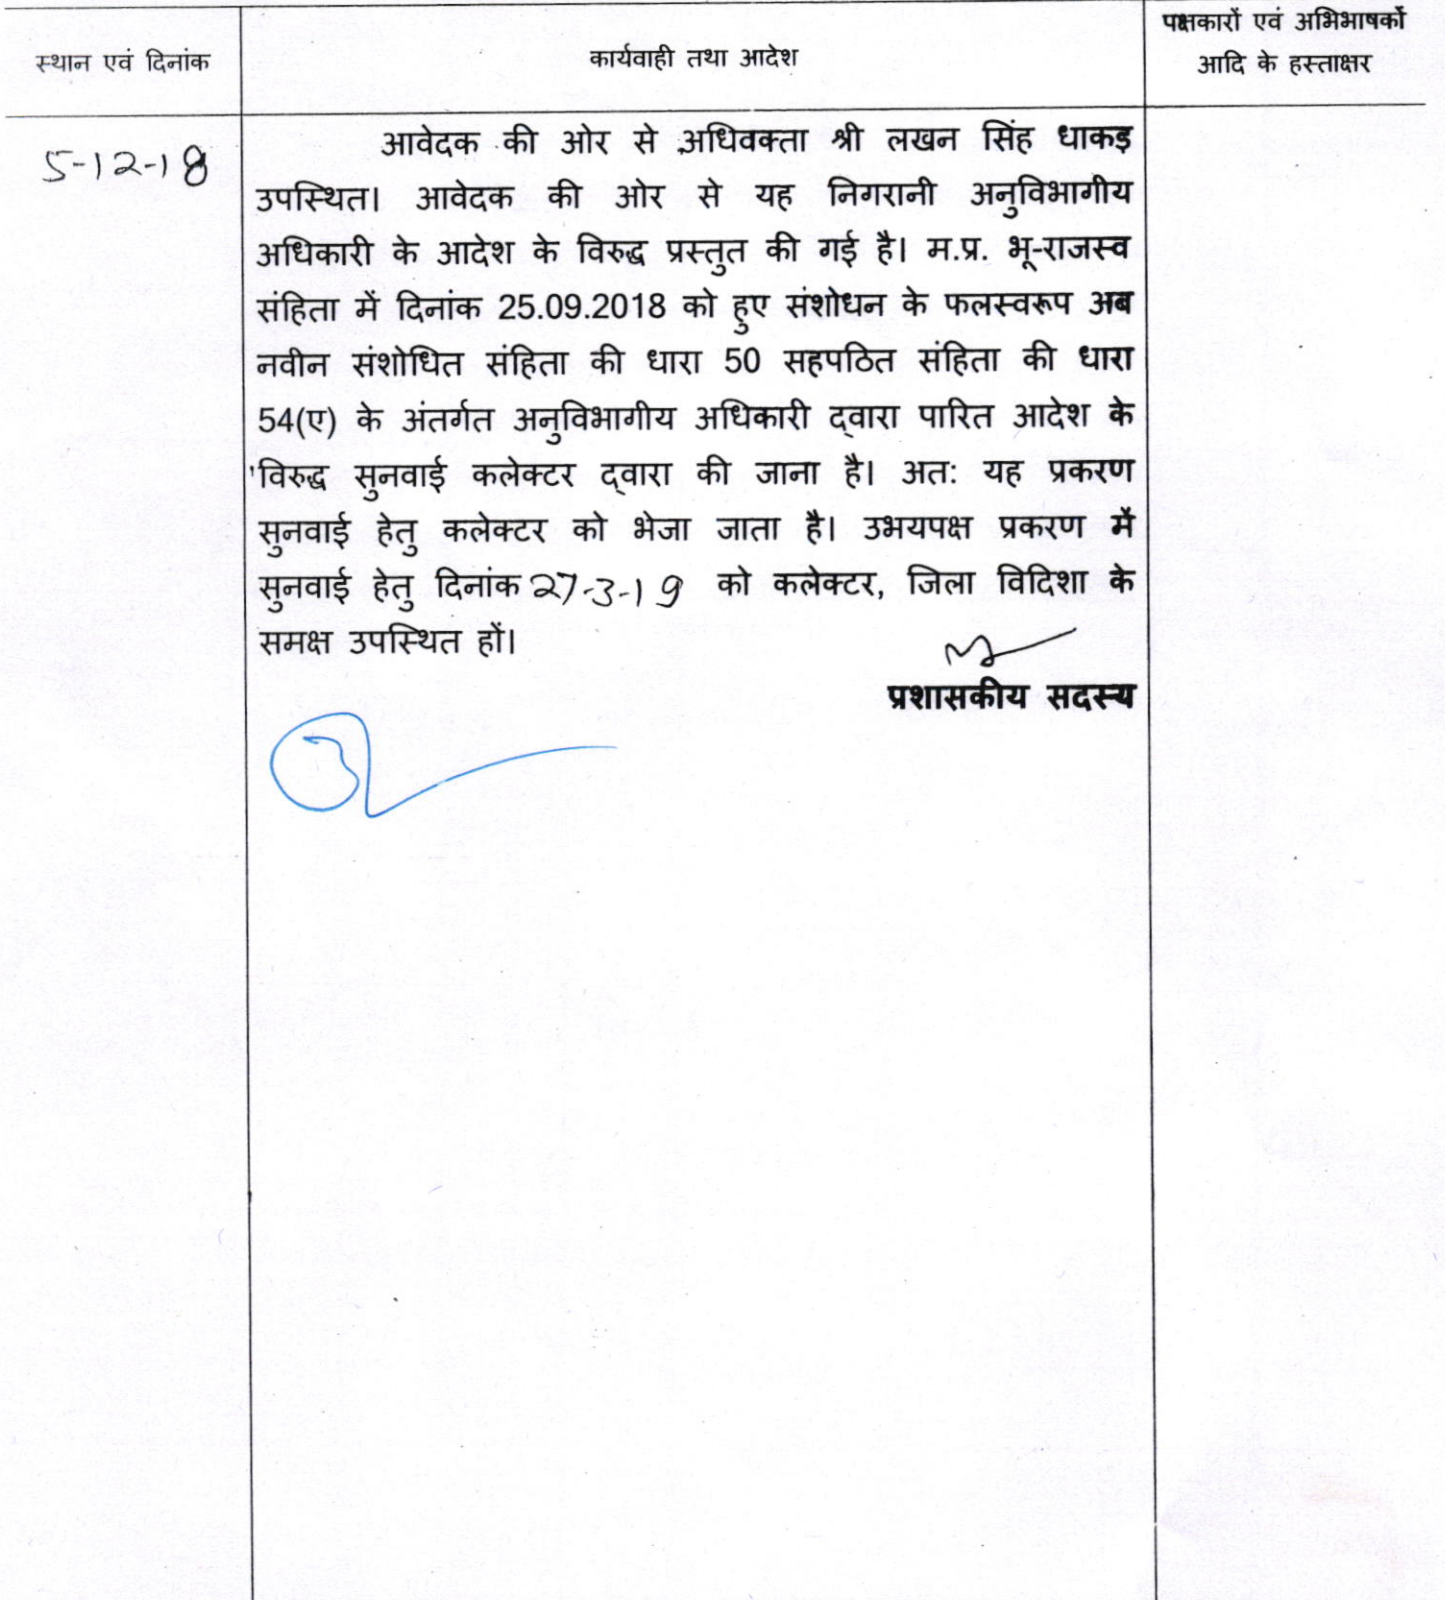 स्थान एवं दिनांक
कार्यवाही तथा आदेश
पक्षकारों एवं अभिभाषकों
आदि के हस्ताक्षर
5-12-18
आवेदक की ओर से अधिवक्ता श्री लखन सिंह धाकड़
उपस्थित। आवेदक की ओर से यह निगरानी अनुविभागीय
अधिकारी के आदेश के विरुद्ध प्रस्तुत की गई है। म.प्र. भू-राजस्व
संहिता में दिनांक 25.09.2018 को हुए संशोधन के फलस्वरूप अब
नवीन संशोधित संहिता की धारा 50 सहपठित संहिता की धारा
54(ए) के अंतर्गत अनुविभागीय अधिकारी द्वारा पारित आदेश के
विरुद्ध सुनवाई कलेक्टर द्वारा की जाना है। अतः यह प्रकरण
सुनवाई हेतु कलेक्टर को भेजा जाता है। उभयपक्ष प्रकरण में
सुनवाई हेतु दिनांक 27-3-19 को कलेक्टर, जिला विदिशा के
समक्ष उपस्थित हों।
प्रशासकीय सदस्य